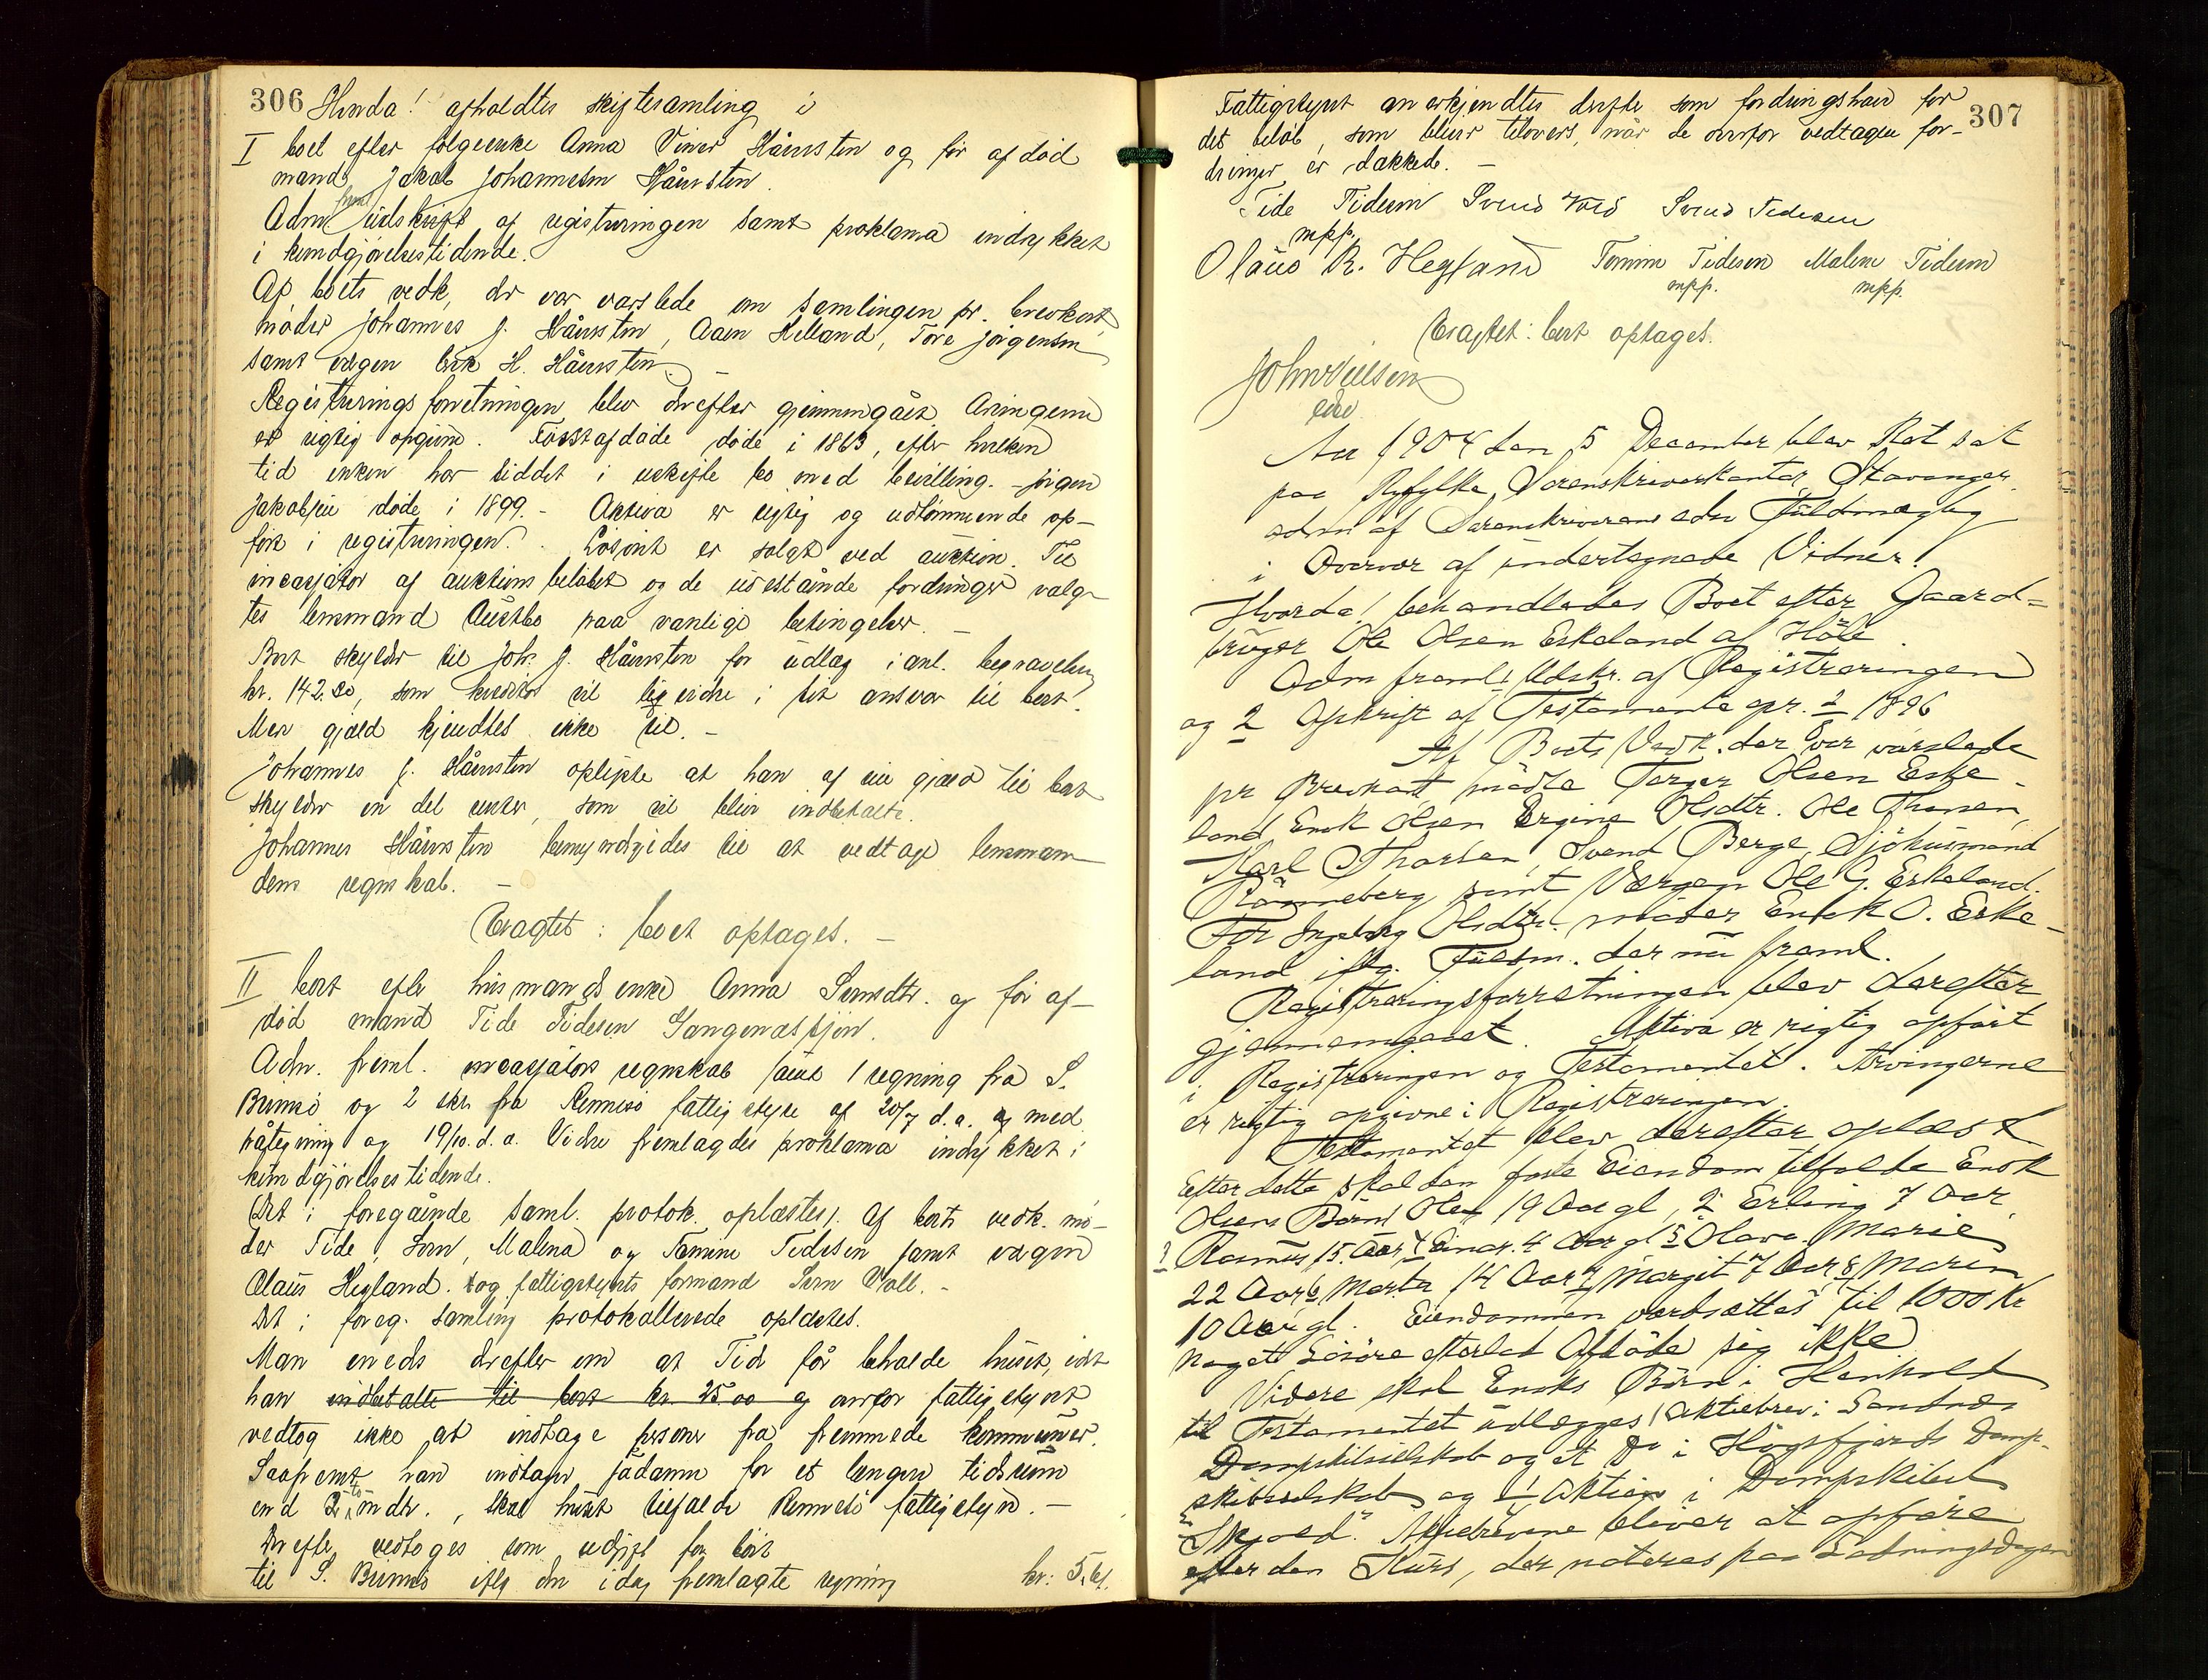 306 Hvorda! afholdtes skiftesamling i
I boet efter følgeenke Anna Håversten og før afdød
mand Jakob Johannesen Håversten.
Adm. freml udskrift af registreringen samt proklama indrykket
i kundgjørelsestidende.
Af boets vedk., der var varslede om samlingen pr. brevkort,
møder Johannes J. Håversten, Helland, Tore Jørgensen
samt værgen Erik H. Håversten. –
Registreringsforretningen blev derefter gjennemgået. Arvingerne
er rigtig opgivne. Førstafdøde døde i 1863, efter hvilken
tid enken har siddet i uskifte bo med bevilling. – Jørgen
Jakobsen døde i 1899. – Aktiva er rigtig og udtømmende op-
ført i registreringen. Løsøret er solgt ved auktion. Til
incassator af auktionsbeløbet og de udestående fordringer valg-
tes lensmand Austbø paa vanlige betingelser. –
Boet skylder til Joh. J. Håversten for udlæg i anl. begravelsen
kr. 142.80, som kreditor vil i sit ansvar til boet.
Mer gjæld kjendtes ikke til. –
Johannes J. Håversten oplyste at han af sin gjæld til boet
skylder en del renter, som vil blive indbetalt.
Johannes Håversten bemyndigedes til at vedtage lensman-
dens regnskab. –
Eragtet: boet optages. –
II boet efter husmandsenke Anna Svendsdtr. og før af-
død mand Tide Tidesen
Adm. freml. incassators regnskab samt 1 regning fra S.
Bunes og 2 skr. fra Rennesø fattigstyre af 20/7 d.a. og med
påtegning og 19/10. d.a. Videre fremlagdes proklama indrykket i
kundgjørelsestidende.
Det i foregående saml. protok. oplæstes. Af boets vedk. mø-
der Tide, Sven, Malena og Tomine Tidesen samt værgen
Olaus Hegland. og fattigstyrets formand Sven Voll. –
Det i foreg. samling protokollerede oplæstes.
Man enedes derefter om at Tide får beholde huset, idet
han indbetalte til boet kr. 25.00 og overfor fattigstyret
vedtog ikke at indtage personer fra fremmede kommuner.
Saafremt han indtager sådanne for et længere tidsrum
end 2 to mdr., skal huset tilfalde Rennesø fattigstyre. –
Derefter vedtoges som udgift for boet
til S. Bunes iflg den idag fremlagte regning kr. 5.61.
307
Fattigstyret anerkjendtes derefter som fordringshaver for
det beløb, som bliver tilovers, når de ovenfor vedtagne for-
dringer er dækkede. –
Tide Tidesen Svend Vold Svend Tidesen
mpp.
Olaus R. Hegland Tomine Tidesen Malene Tidesen
mpp. mpp.
Eragtet: boet optages.
John Nielsen
edsv
Aar 1904 den 5 December blev Ret sat
paa Ryfylke Sorenskriverkontor, Stavanger
adm af Sorenskriverens edsv Fuldmægtig
i Overvær af undertegnede Vidner.
Hvorda! behandledes Boet efter Gaard-
bruger Ole Olsen Eskeland af Höle.
Adm freml. 1 Udskr. af Registreringen
og 2 Afskrift af Testamente 1896
Af Boets Vedk. der var varslede
pr Brevkort mödte Torger Olsen Eske-
land, Enok Olsen Ergine Olsdtr. Ole Thorsen,
Karl Thorsen, Svend Berge, Sjöhusmand
Rönneberg samt Værgen Ole G. Eskeland.
For Ingeborg Olsdtr. möder Enok O. Eske-
land iflg. Fuldm. der nu freml.
Registreringsforretningen blev derefter
gjennemgaaet. Aktiva er rigtig opfört
i Registreringen og Testamentet. Arvingerne
er rigtig opgivne i Registreringen.
Testamentet blev derefter oplæst
Efter dette skal den faste Eiendom tilfalde Enok
Olsens Börn 1 Ole 19 Aar gl, 2 Erling 7 Aar
3 Rasmus 15 Aar, 4 Einar. 4 Aar gl 5 Olava Marie
22 Aar 6 Marta 14 Aar 7 Margit 7 Aar 8 Maren
10 Aar gl. Eiendommen værdsættes til 1000 Kr
Noget Lösöre efterlod Afdöde sig ikke
Videre skal Enoks Börn i Henhold
til Testamentet udlægges 1 Aktiebrev i Sandnes
Dampskibsselskab og et Do i Högsfjords Damp-
skibsselskab og 1 Aktie i Dampskibet
"Skjold". Aktiebrevene bliver at opföre
efter den Kurs, der noteres paa Ladningsdagen